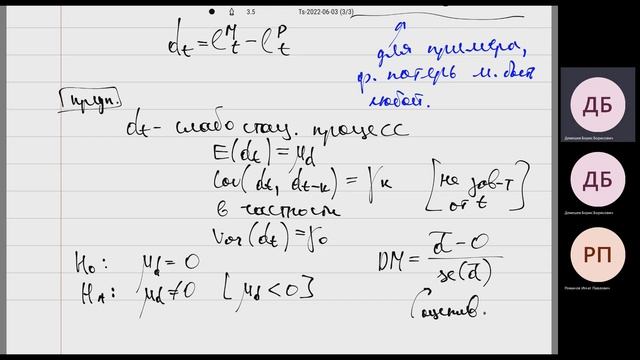 3.5 Ts-2022-06-03 (3/3)
d_t = l_t^M - l_t^P
для примера,
ф. потерь м. быть
любой.
Предп.
d_t - слабо стац. процесс
E(d_t) = μ_d
Cov(d_t, d_{t-k}) = γ_k [не зав-т от t]
в частности
Var(d_t) = γ_0
H_0: μ_d = 0
H_A: μ_d ≠ 0 [μ_d < 0]
DM = (d̄ - 0) / se(d̄)
оценив.
ДБ
Демешев Борис Борисович
ДБ
Демешев Борис Борисович
РП
Романов Игнат Павлович